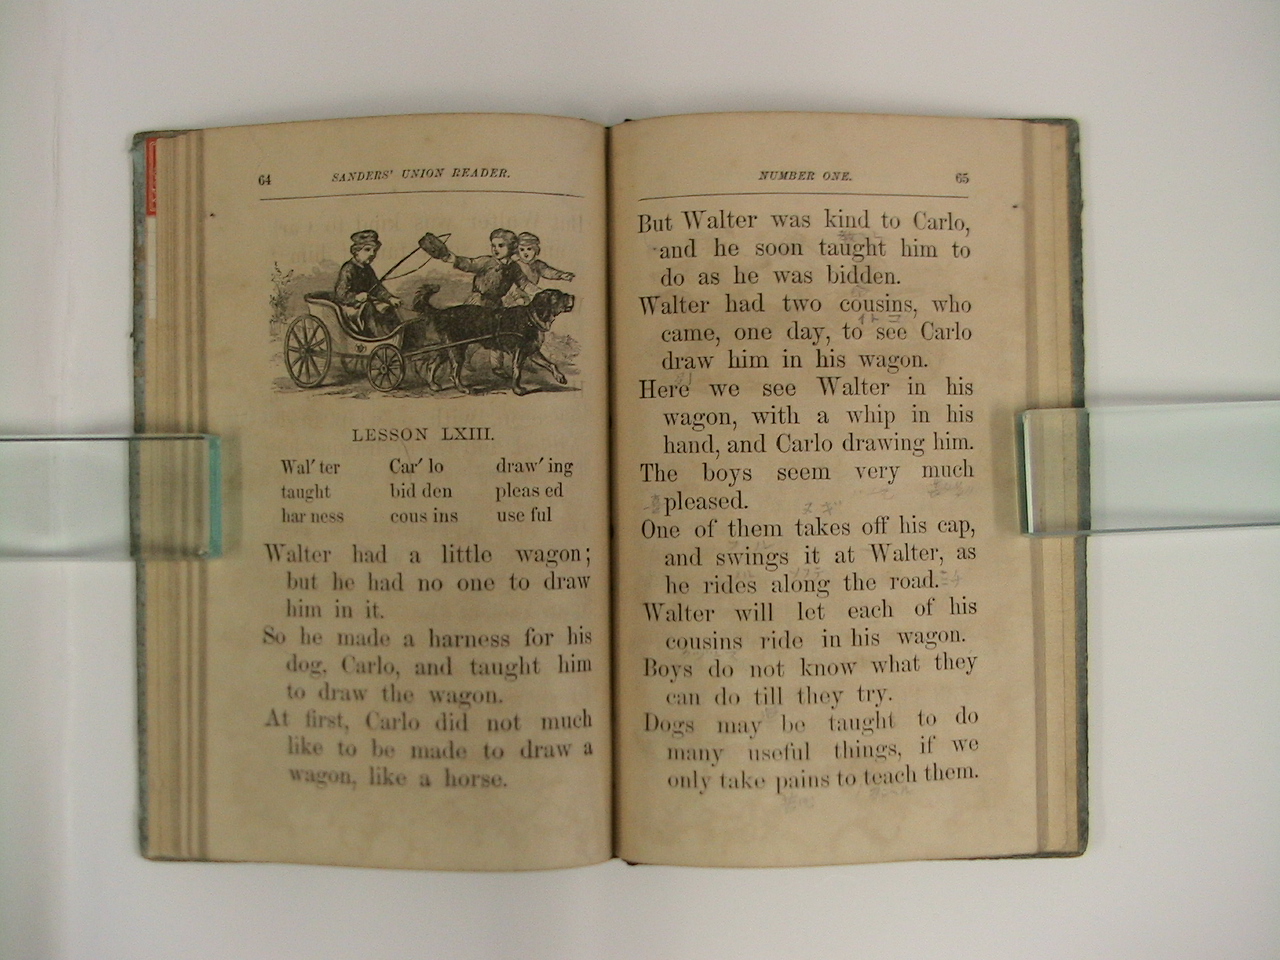 64
SANDERS' UNION READER.
LESSON LXIII.
Wal′ ter Car′ lo draw′ ing
taught bid den pleas ed
har ness cous ins use ful
Walter had a little wagon;
but he had no one to draw
him in it.
So he made a harness for his
dog, Carlo, and taught him
to draw the wagon.
At first, Carlo did not much
like to be made to draw a
wagon, like a horse.
NUMBER ONE.
65
But Walter was kind to Carlo,
and he soon taught him to
do as he was bidden.
Walter had two cousins, who
イトコ
came, one day, to see Carlo
draw him in his wagon.
Here we see Walter in his
wagon, with a whip in his
hand, and Carlo drawing him.
The boys seem very much
pleased.
ヌギ
One of them takes off his cap,
and swings it at Walter, as
he rides along the road.
Walter will let each of his
cousins ride in his wagon.
Boys do not know what they
can do till they try.
Dogs may be taught to do
many useful things, if we
only take pains to teach them.